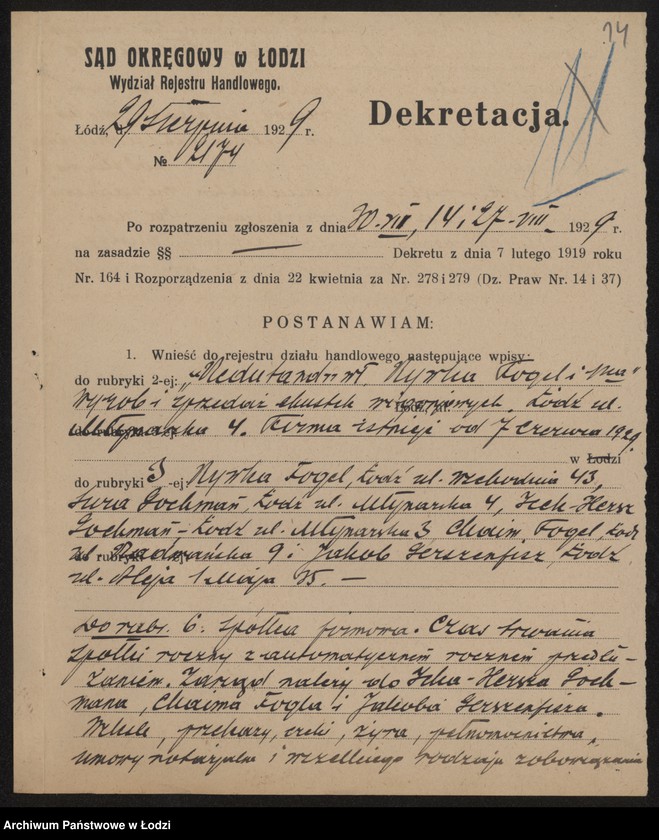 14
SĄD OKRĘGOWY w ŁODZI
Wydział Rejestru Handlowego.
Dekretacja.
Łódź, d. 29 sierpnia 1929 r.
№ 2174
Po rozpatrzeniu zgłoszenia z dnia 14 i 27-VIII 1929 r.
na zasadzie §§ — Dekretu z dnia 7 lutego 1919 roku
Nr. 164 i Rozporządzenia z dnia 22 kwietnia za Nr. 278 i 279 (Dz. Praw Nr. 14 i 37)
POSTANAWIAM:
1. Wnieść do rejestru działu handlowego następujące wpisy:
do rubryki 2-ej: Fogel i
Wyrób i sprzedaż chustek Łódź ul.
Młynarska 4. Firma istnieje od 7 czerwca 1929.
w Łodzi
do rubryki 3-ej: Fogel, Łódź ul. Wschodnia 43,
Sura Gochman, Łódź ul. Młynarska 4, Icek-Hersz
Gochman – Łódź ul. Młynarska 3, Chaim Fogel, Łódź
ul. 9 i Jakob Gerszenfisz, Łódź
ul. Aleja 1 Maja —
Do rubr. 6. Spółka firmowa. Czas trwania
spółki roczny z automatycznem rocznem przedłu-
żaniem. Zarząd należy do Icka-Hersza Goch-
mana, Chaima Fogla i Jakoba Gerszenfisza.
Weksle, przekazy, czeki, żyra, pełnomocnictwa,
umowy notarjalne i wszelkiego rodzaju zobowiązania
Archiwum Państwowe w Łodzi